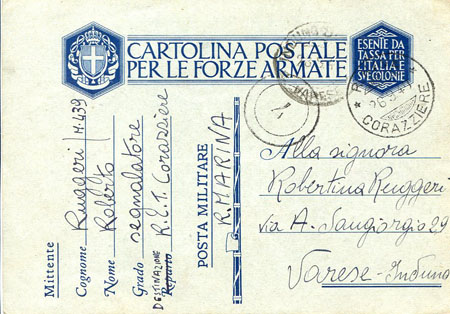 CARTOLINA POSTALE
PER LE FORZE ARMATE
ESENTE DA
TASSA PER
L'ITALIA E
SVE COLONIE
VARESE
CORAZZIERE
Mittente
Cognome Ruggeri M-439
Nome Roberto
Grado segnalatore
DESTINAZIONE
Reparto R.C.T. Corazziere
POSTA MILITARE
R. MARINA
Alla signora
Robertina Ruggeri
via A. Sangiorgio 29
Varese-Induno